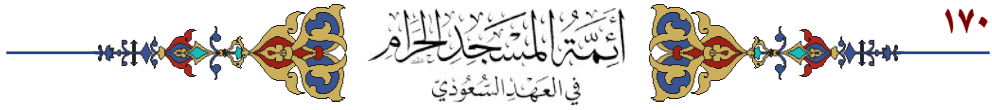 ١٧٠
أَئِمَّةُ المَسْجِدِ الحَرَامِ
في العَهْدِ السُّعُودِيّ